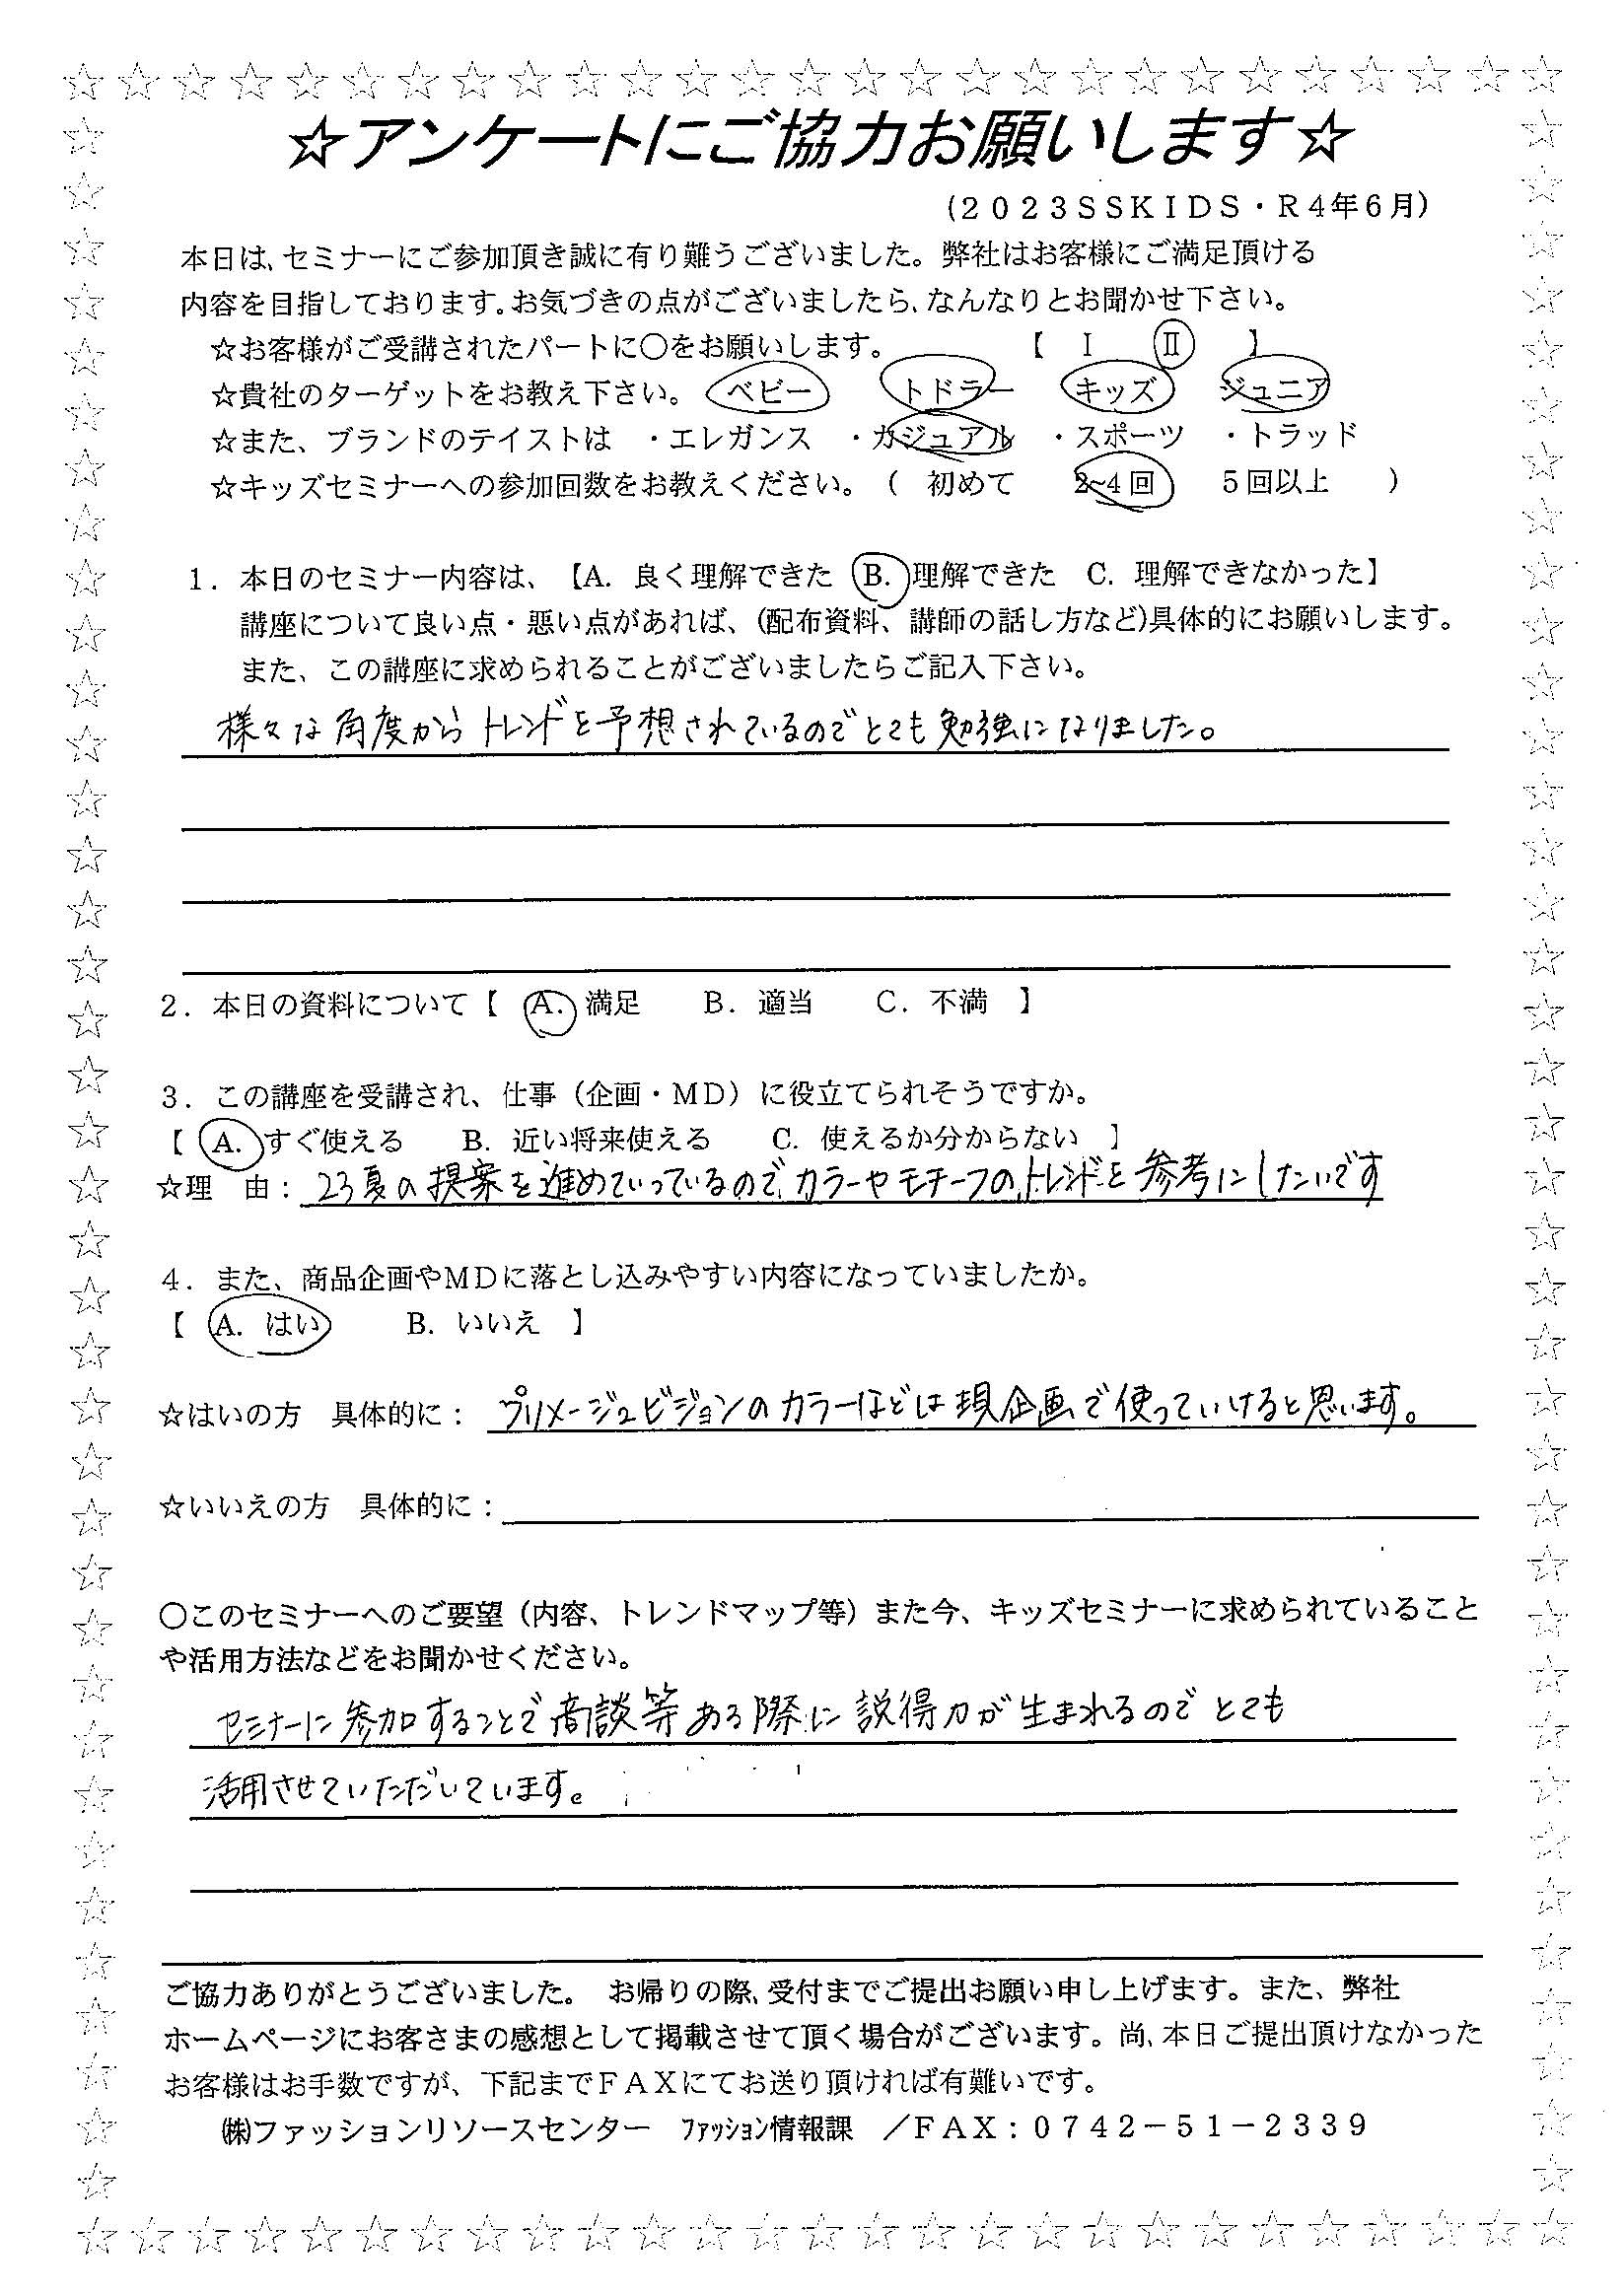 ☆アンケートにご協力お願いします☆
(２０２３ＳＳＫＩＤＳ・Ｒ４年６月)
本日は、セミナーにご参加頂き誠に有り難うございました。弊社はお客様にご満足頂ける
内容を目指しております。お気づきの点がございましたら、なんなりとお聞かせ下さい。
☆お客様がご受講されたパートに〇をお願いします。　【　Ⅰ　Ⅱ　】
☆貴社のターゲットをお教え下さい。　ベビー　トドラー　キッズ　ジュニア
☆また、ブランドのテイストは　・エレガンス　・カジュアル　・スポーツ　・トラッド
☆キッズセミナーへの参加回数をお教えください。（　初めて　2~4回　５回以上　）
１．本日のセミナー内容は、【A. 良く理解できた　B. 理解できた　C. 理解できなかった】
講座について良い点・悪い点があれば、(配布資料、講師の話し方など)具体的にお願いします。
また、この講座に求められることがございましたらご記入下さい。
様々な角度からトレンドを予想されているのでとても勉強になりました。
２．本日の資料について【　A. 満足　B. 適当　C. 不満　】
３．この講座を受講され、仕事（企画・ＭＤ）に役立てられそうですか。
【　A. すぐ使える　B. 近い将来使える　C. 使えるか分からない　】
☆理　由：23夏の提案を進めていっているので、カラーやモチーフのトレンドを参考にしたいです
４．また、商品企画やＭＤに落とし込みやすい内容になっていましたか。
【　A. はい　B. いいえ　】
☆はいの方　具体的に：プリメージュビジョンのカラーなどは現企画で使っていけると思います。
☆いいえの方　具体的に：
〇このセミナーへのご要望（内容、トレンドマップ等）また今、キッズセミナーに求められていること
や活用方法などをお聞かせください。
セミナーに参加することで商談等ある際に説得力が生まれるのでとても
活用させていただいています。
ご協力ありがとうございました。　お帰りの際、受付までご提出お願い申し上げます。また、弊社
ホームページにお客さまの感想として掲載させて頂く場合がございます。尚、本日ご提出頂けなかった
お客様はお手数ですが、下記までＦＡＸにてお送り頂ければ有難いです。
㈱ファッションリソースセンター　ﾌｧｯｼｮﾝ情報課　／ＦＡＸ：０７４２－５１－２３３９